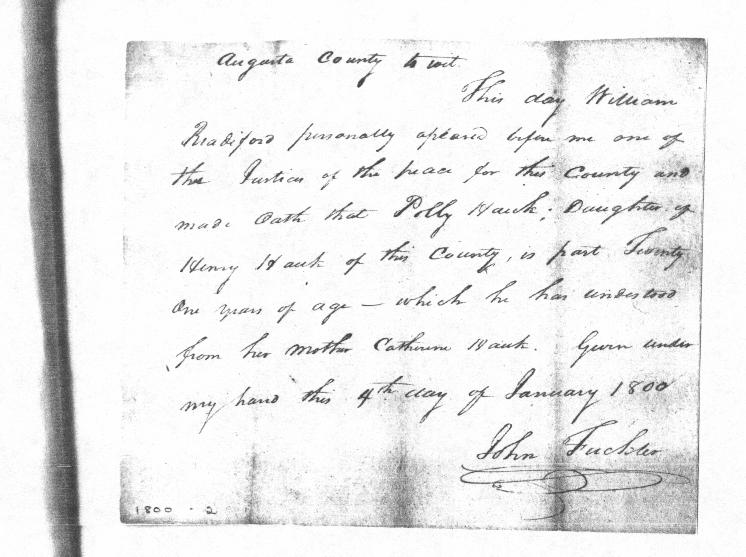 Augusta County to wit.
This day William
Bradiford personally apeared before me one of
the Justices of the peace for this County and
made Oath that Polly Hauk; Daughter of
Henry Hauk of this County, is past Twenty
One years of age — which he has understood
from her Mother Catherine Hauk. Given under
my hand this 4th day of January 1800
John
1800 - 2